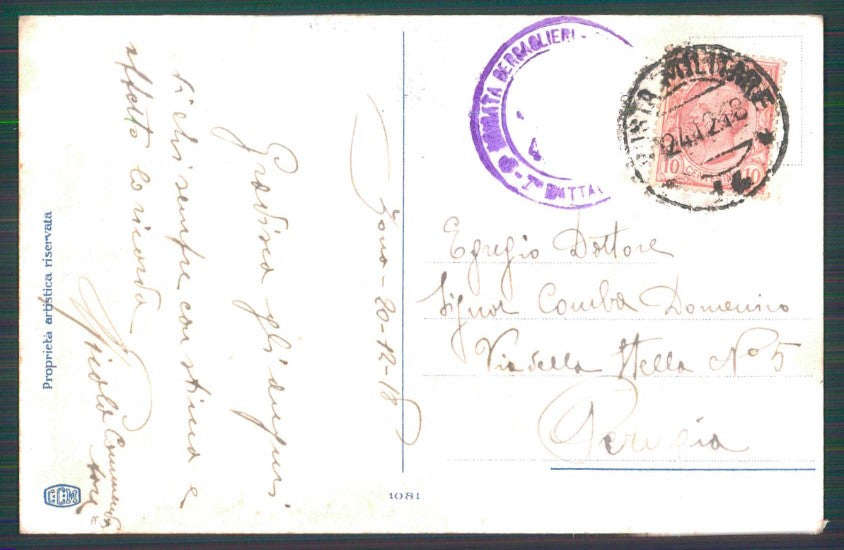 Zona - 20-12-18
Gradisca gli auguri
di chi sempre con stima e
affetto lo ricorda
Proprietà artistica riservata
CCM
1081
BRIGATA BERSAGLIERI
BATTA
POSTA MILITARE
24.12.18
10 CENT 10
Egregio Dottore
Signor Comba Domenico
Via della Stella No 5
Perugia